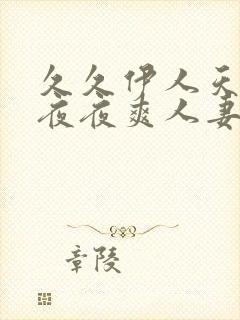 久久伊人天
夜夜爽人妻
章陵